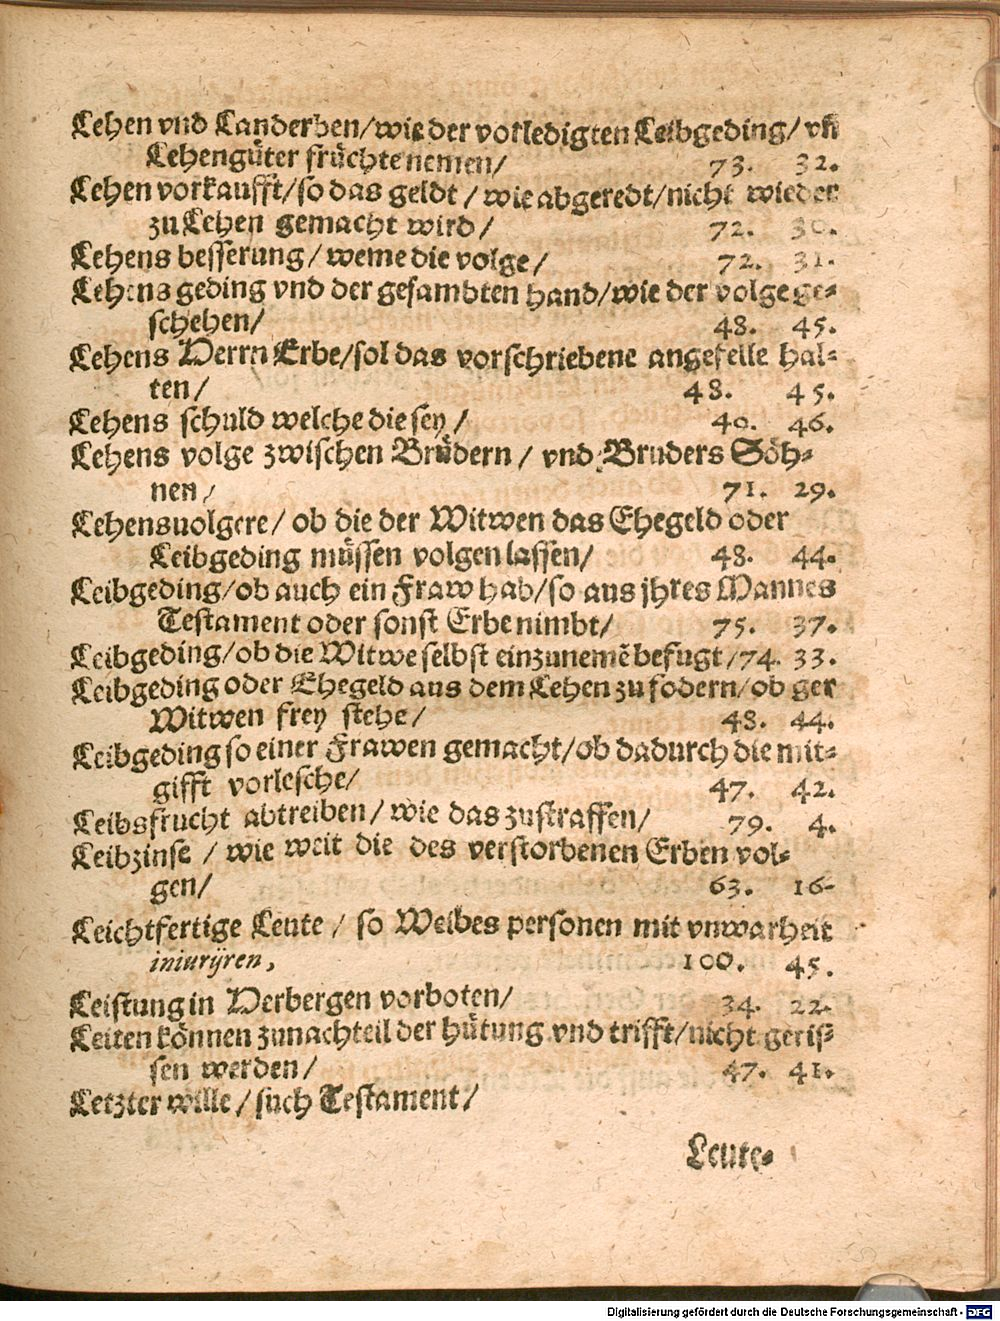 Lehen vnd Landerben/wie der vorledigten Leibgeding/ vñ
Lehengüter früchte nemen/ 73. 32.
Lehen vorkaufft/so das geldt / wie abgeredt/nicht wieder
zu Lehen gemacht wird/ 72. 30.
Lehens besserung/ weme die volge/ 72. 31.
Lehens geding vnd der gesambten hand/wie der volge ge-
schehen/ 48. 45.
Lehens Herrn Erbe/sol das vorschriebene angefelle hal-
ten/ 48. 45.
Lehens schuld welche die sey/ 40. 46.
Lehens volge zwischen Brüdern / vnd Bruders Söh-
nen/ 71. 29.
Lehensuolgere/ ob die der Witwen das Ehegeld oder
Leibgeding müssen volgen lassen/ 48. 44.
Leibgeding/ob auch ein Fraw hab/so aus jhres Mannes
Testament oder sonst Erbe nimbt/ 75. 37.
Leibgeding/ob die Witwe selbst einzunemē befugt/74. 33.
Leibgeding oder Ehegeld aus dem Lehen zu fodern/ob der
Witwen frey stehe/ 48. 44.
Leibgeding so einer Frawen gemacht/ob dadurch die mit-
gifft vorlesche/ 47. 42.
Leibsfrucht abtreiben/ wie das zustraffen/ 79. 4.
Leibzinse / wie weit die des verstorbenen Erben vol-
gen/ 63. 16-
Leichtfertige Leute / so Weibes personen mit vnwarheit
iniurijren, 100. 45.
Leistung in Herbergen vorboten/ 34. 22.
Leiten können zunachteil der hütung vnd trifft/nicht geris-
sen werden/ 47. 41.
Letzter wille/such Testament/
Leute-
Digitalisierung gefördert durch die Deutsche Forschungsgemeinschaft - DFG